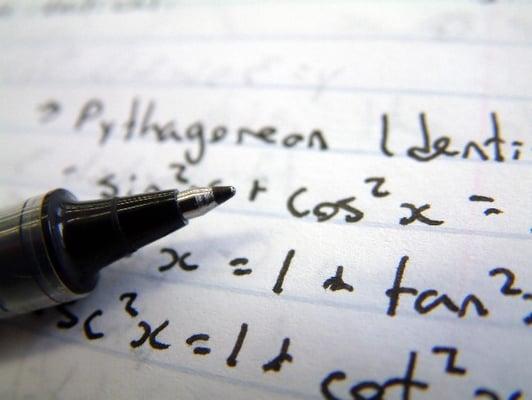 → Pythagorean Identi
sin² + cos² x =
x = 1 + tan²
sc² x = 1 + cot² x